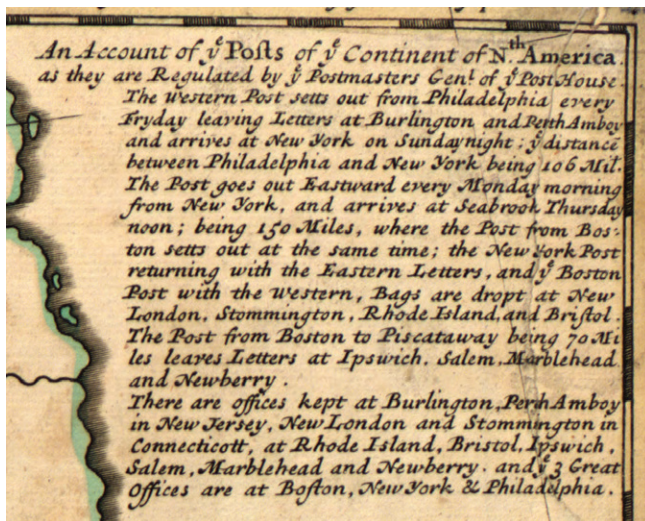 An Account of yᵉ Posts of yᵉ Continent of N.ᵗʰ America.
as they are Regulated by yᵉ Postmasters Genˡ. of yᵉ Post House.
The Western Post setts out from Philadelphia every
Fryday leaving Letters at Burlington and Perth Amboy
and arrives at New York on Sunday night; yᵉ distance
between Philadelphia and New York being 106 Mil.
The Post goes out Eastward every Monday morning
from New York, and arrives at Seabrook Thursday
noon; being 150 Miles, where the Post from Bos-
ton setts out at the same time; the New York Post
returning with the Eastern Letters, and yᵉ Boston
Post with the Western, Bags are dropt at New
London, Stommington, Rhode Island, and Bristol.
The Post from Boston to Piscataway being 70 Mi
les leaves Letters at Ipswich, Salem, Marblehead
and Newberry.
There are offices kept at Burlington, Perth Amboy
in New Jersey, New London and Stommington in
Connecticott, at Rhode Island, Bristol, Ipswich,
Salem, Marblehead and Newberry. and yᵉ 3 Great
Offices are at Boston, New York & Philadelphia.